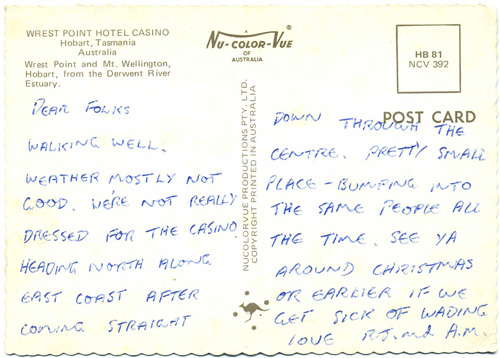 WREST POINT HOTEL CASINO
Hobart, Tasmania
Australia
Wrest Point and Mt. Wellington,
Hobart, from the Derwent River
Estuary.
A
NU-COLOR-VUE®
OF
AUSTRALIA
HB 81
NCV 392
POST CARD
NUCOLORVUE PRODUCTIONS PTY. LTD.
COPYRIGHT PRINTED IN AUSTRALIA
DEAR FOLKS
WALKING WELL.
WEATHER MOSTLY NOT
GOOD. WE'RE NOT REALLY
DRESSED FOR THE CASINO
HEADING NORTH ALONG
EAST COAST AFTER
COMING STRAIGHT
DOWN THROUGH THE
CENTRE. PRETTY SMALL
PLACE - BUMPING INTO
THE SAME PEOPLE ALL
THE TIME. SEE YA
AROUND CHRISTMAS
OR EARLIER IF WE
GET SICK OF WADING
LOVE R.J. and A.M.